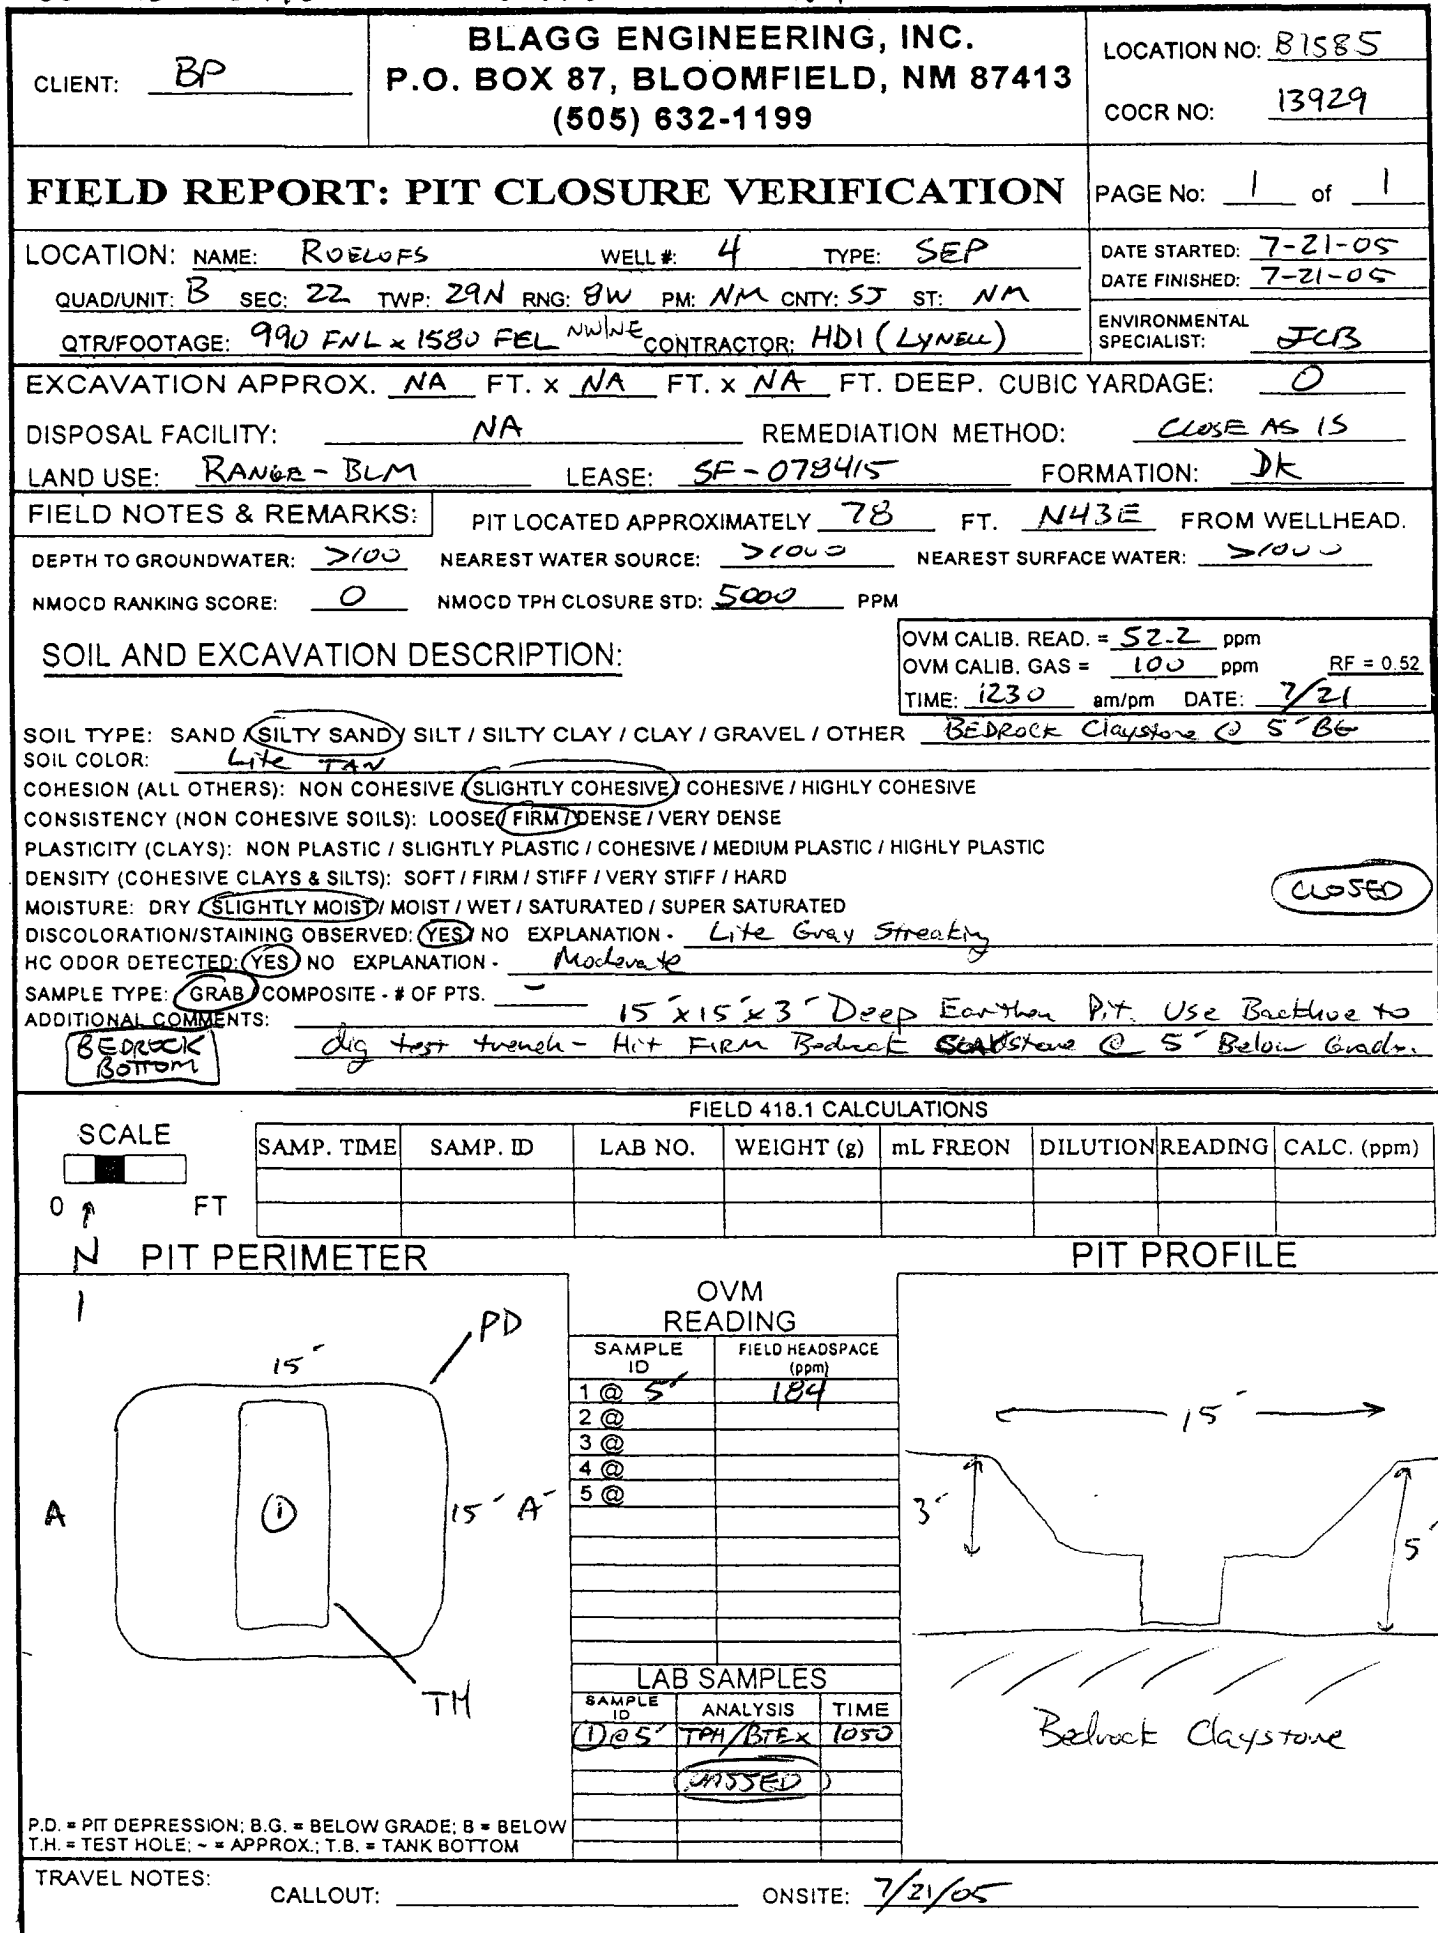 BLAGG ENGINEERING, INC.
P.O. BOX 87, BLOOMFIELD, NM 87413
(505) 632-1199
CLIENT: BP
LOCATION NO: B1585
COCR NO: 13929
FIELD REPORT: PIT CLOSURE VERIFICATION
PAGE No: 1 of 1
LOCATION: NAME: ROELOFS WELL #: 4 TYPE: SEP
QUAD/UNIT: B SEC: 22 TWP: 29N RNG: 8W PM: NM CNTY: SJ ST: NM
QTR/FOOTAGE: 990 FNL x 1580 FEL NW/NE CONTRACTOR: HDI (LYNELL)
DATE STARTED: 7-21-05
DATE FINISHED: 7-21-05
ENVIRONMENTAL
SPECIALIST: JCB
EXCAVATION APPROX. NA FT. x NA FT. x NA FT. DEEP. CUBIC YARDAGE: 0
DISPOSAL FACILITY: NA REMEDIATION METHOD: CLOSE AS IS
LAND USE: RANGE - BLM LEASE: SF-078415 FORMATION: DK
FIELD NOTES & REMARKS: PIT LOCATED APPROXIMATELY 78 FT. N43E FROM WELLHEAD.
DEPTH TO GROUNDWATER: >100 NEAREST WATER SOURCE: >1000 NEAREST SURFACE WATER: >1000
NMOCD RANKING SCORE: 0 NMOCD TPH CLOSURE STD: 5000 PPM
SOIL AND EXCAVATION DESCRIPTION:
OVM CALIB. READ. = 52.2 ppm
OVM CALIB. GAS = 100 ppm RF = 0.52
TIME: 1230 am/pm DATE: 7/21
SOIL TYPE: SAND / SILTY SAND / SILT / SILTY CLAY / CLAY / GRAVEL / OTHER BEDROCK Claystone @ 5' BG
SOIL COLOR: Lite TAN
COHESION (ALL OTHERS): NON COHESIVE / SLIGHTLY COHESIVE / COHESIVE / HIGHLY COHESIVE
CONSISTENCY (NON COHESIVE SOILS): LOOSE / FIRM / DENSE / VERY DENSE
PLASTICITY (CLAYS): NON PLASTIC / SLIGHTLY PLASTIC / COHESIVE / MEDIUM PLASTIC / HIGHLY PLASTIC
DENSITY (COHESIVE CLAYS & SILTS): SOFT / FIRM / STIFF / VERY STIFF / HARD
CLOSED
MOISTURE: DRY / SLIGHTLY MOIST / MOIST / WET / SATURATED / SUPER SATURATED
DISCOLORATION/STAINING OBSERVED: YES / NO EXPLANATION - Lite Gray Streaking
HC ODOR DETECTED: YES / NO EXPLANATION - Moderate
SAMPLE TYPE: GRAB / COMPOSITE - # OF PTS. -
ADDITIONAL COMMENTS: 15' x 15' x 3' Deep Earthen Pit. Use Backhoe to
BEDROCK
BOTTOM
dig test trench - Hit FIRM Bedrock @ 5' Below Grade.
FIELD 418.1 CALCULATIONS
SCALE
0 FT
SAMP. TIME SAMP. ID LAB NO. WEIGHT (g) mL FREON DILUTION READING CALC. (ppm)
N
PIT PERIMETER
PD
15'
A
1
15' A'
TH
OVM
READING
SAMPLE ID FIELD HEADSPACE (ppm)
1 @ 5' 184
2 @
3 @
4 @
5 @
LAB SAMPLES
SAMPLE ID ANALYSIS TIME
1 @ 5' TPH/BTEX 1050
PASSED
PIT PROFILE
15'
3'
5'
Bedrock Claystone
P.D. = PIT DEPRESSION; B.G. = BELOW GRADE; B = BELOW
T.H. = TEST HOLE; ~ = APPROX.; T.B. = TANK BOTTOM
TRAVEL NOTES:
CALLOUT: ONSITE: 7/21/05